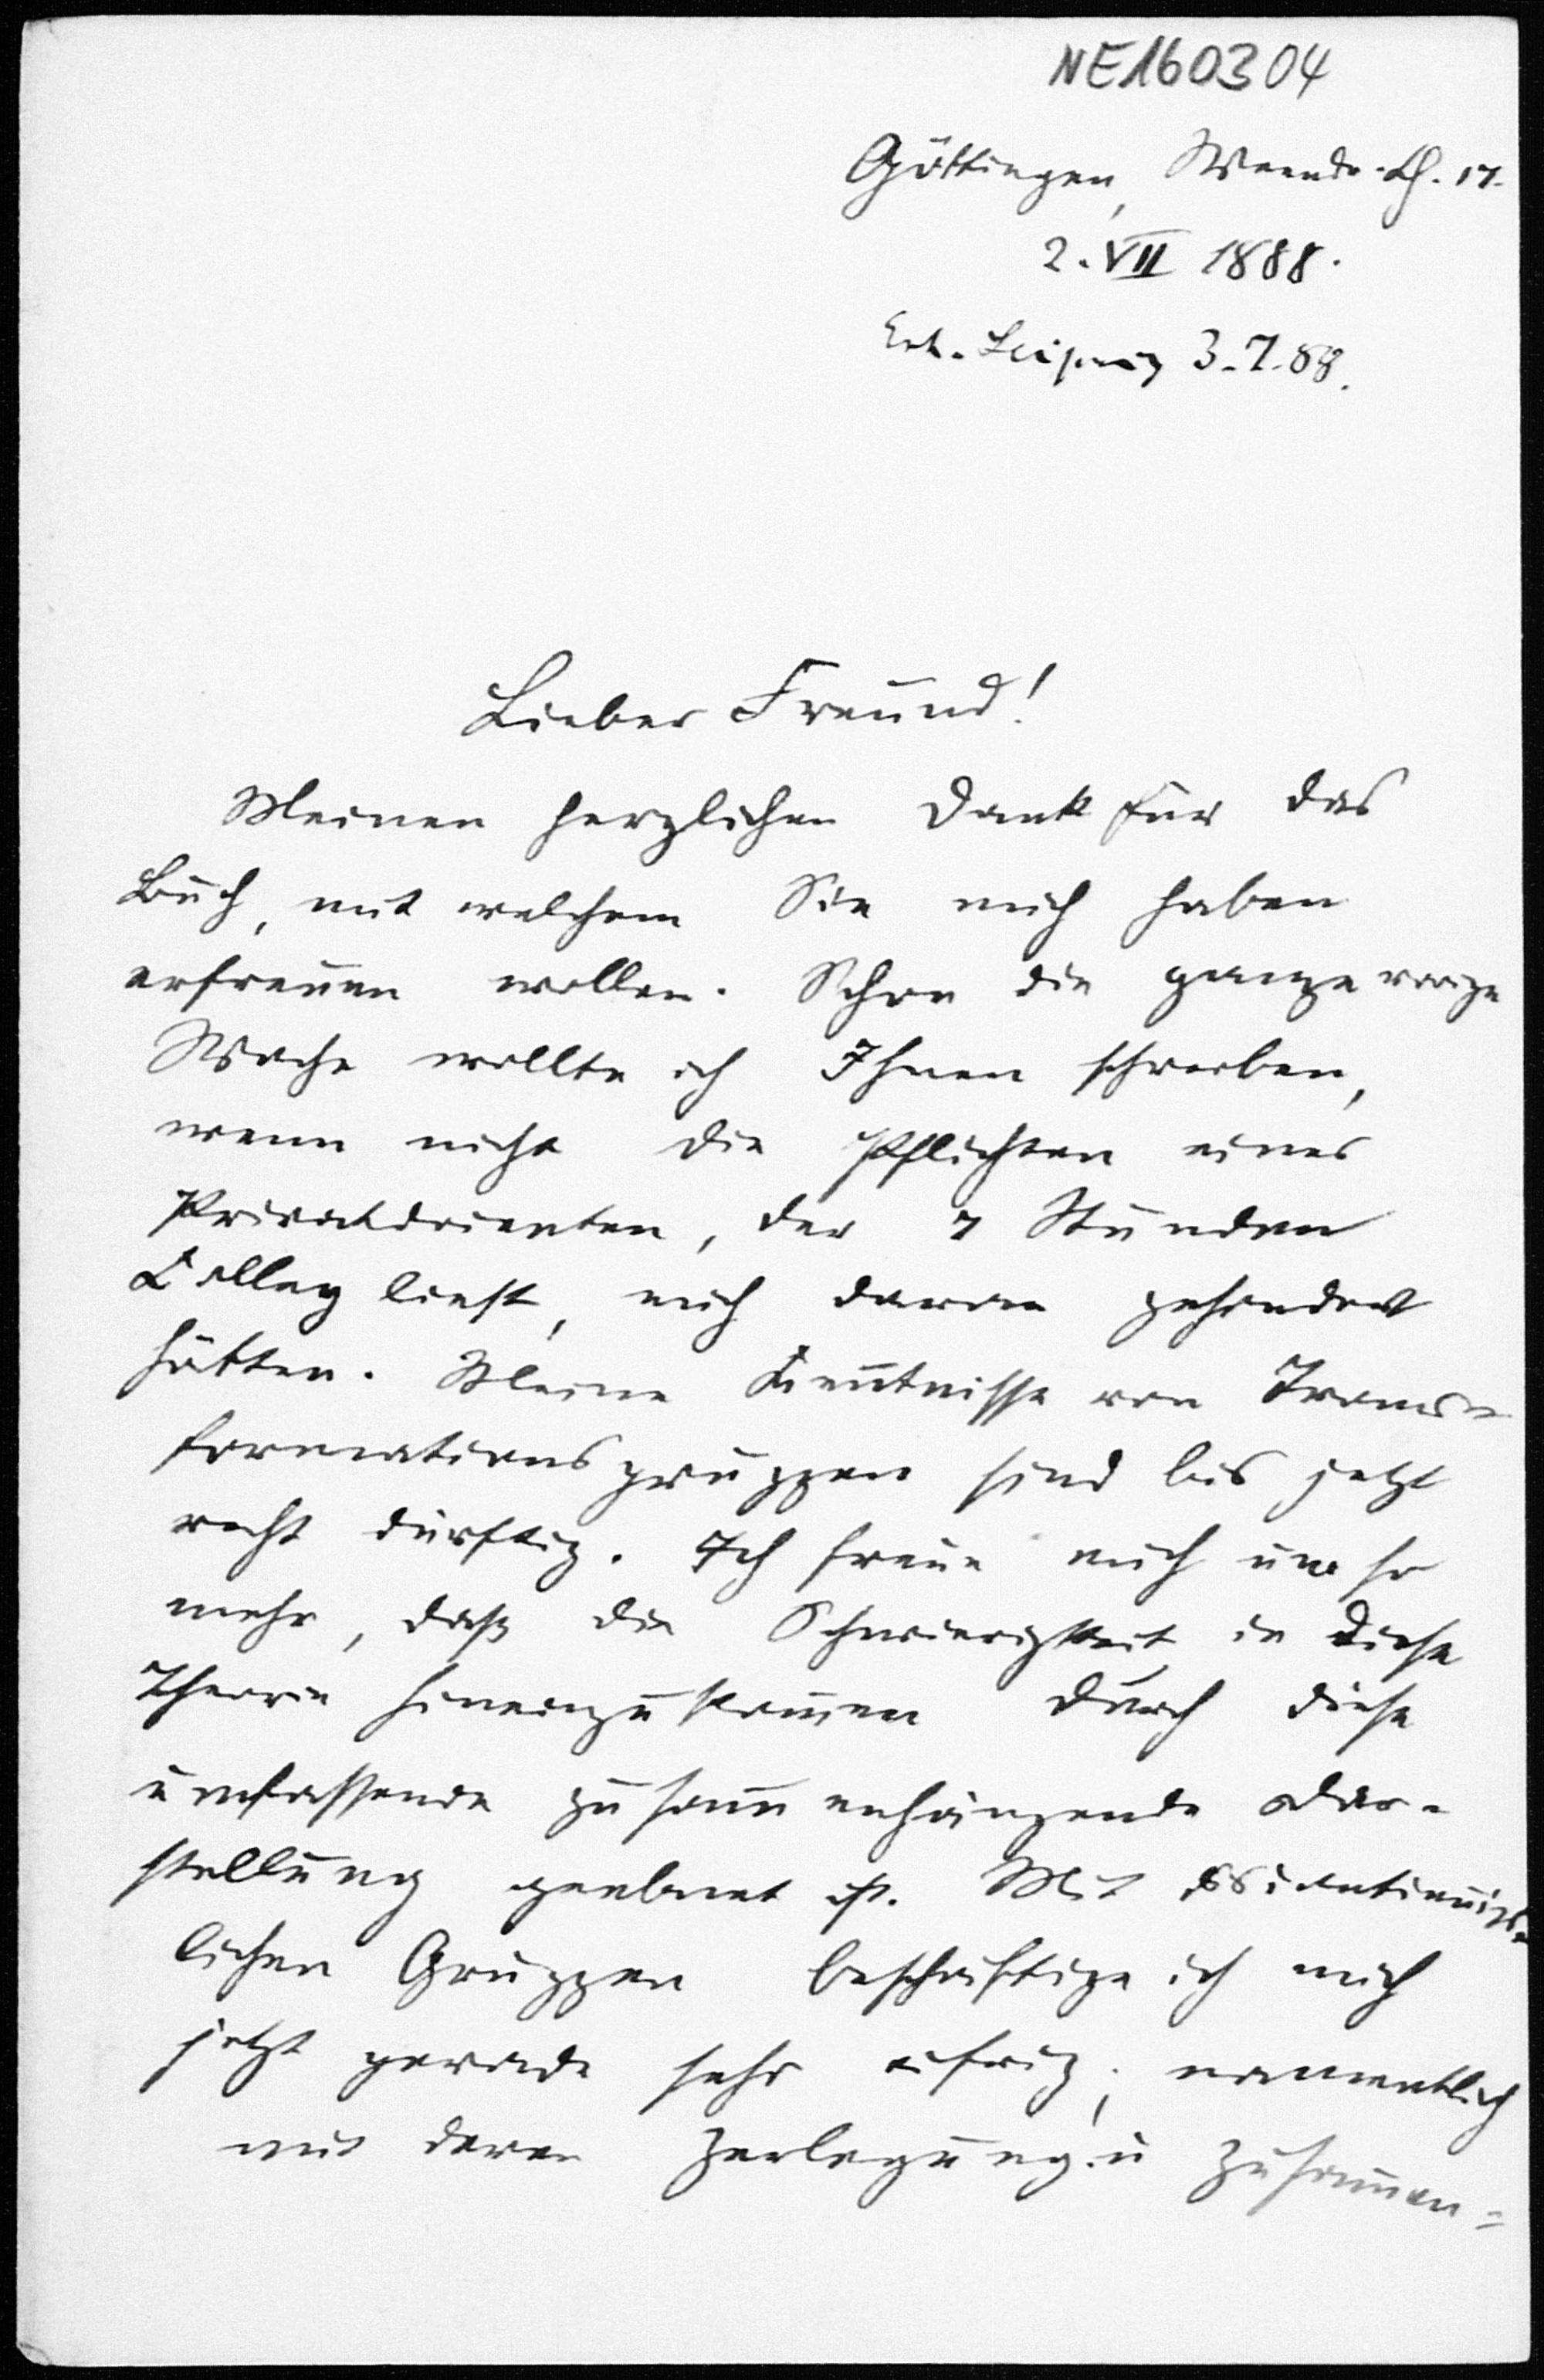 NE160304
Göttingen, Weender-Ch. 17.
2. VII 1888.
Erh. Leipzig 3.7.88.
Lieber Freund!
Meinen herzlichen Dank für das
Buch, mit welchem Sie mich haben
erfreuen wollen. Schon die ganze vorige
Woche wollte ich Ihnen schreiben,
wenn nicht die Pflichten eines
Privatdocenten, der 7 Stunden
Colleg liest, mich daran gehindert
hätten. Meine Kenntnisse von Trans-
formationsgruppen sind bis jetzt
recht dürftig. Ich freue mich um so
mehr, daß die Schwierigkeit, in diese
Theorie hineinzukommen durch diese
umfassende zusammenhängende Dar-
stellung geebnet ist. Mit
lichen Gruppen beschäftige ich mich
jetzt gerade sehr eifrig; namentlich
mit deren Zerlegung u Zusammen-